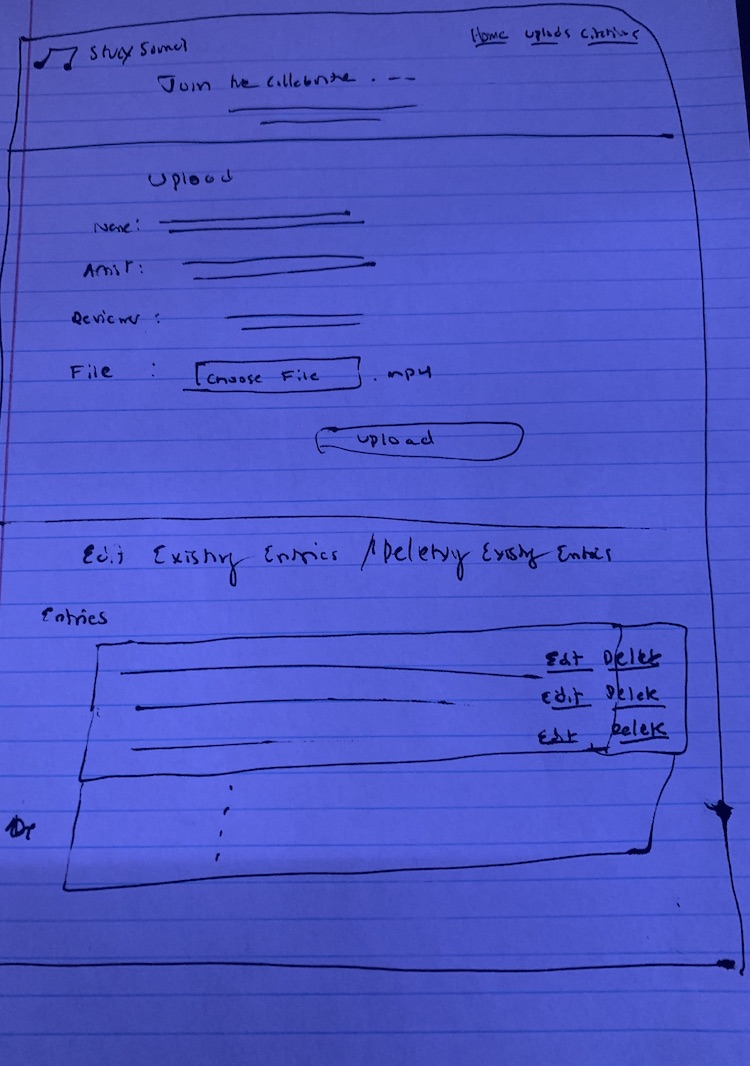 Home Uploads Citations
Study Sound
Join the collebrate . - - -
Upload
Name:
Artist:
Reviewer :
File : Choose File .mp4
Upload
Edit Existing Entries / Deleting Existing Entries
Entries
Edit Delete
Edit Delete
Edit Delete